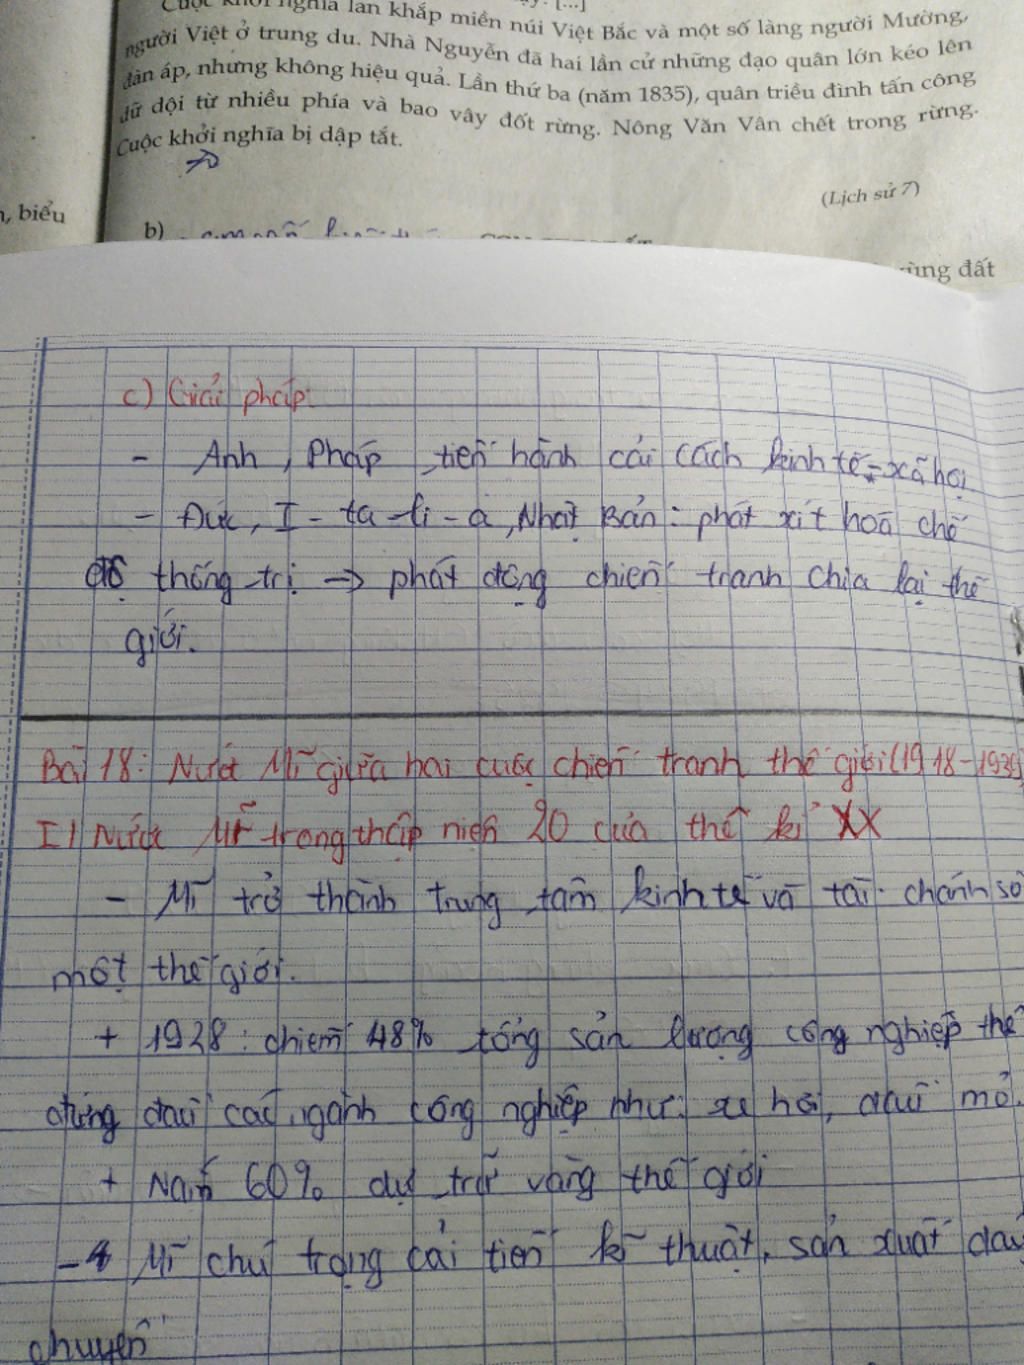 Cuộc khởi nghĩa lan khắp miền núi Việt Bắc và một số làng người Mường,
người Việt ở trung du. Nhà Nguyễn đã hai lần cử những đạo quân lớn kéo lên
đàn áp, nhưng không hiệu quả. Lần thứ ba (năm 1835), quân triều đình tấn công
dữ dội từ nhiều phía và bao vây đốt rừng. Nông Văn Vân chết trong rừng.
Cuộc khởi nghĩa bị dập tắt.
(Lịch sử 7)
, biểu
b)
vùng đất
c) Giải pháp:
- Anh, Pháp tiến hành cải cách kinh tế - xã hội
- Đức, I-ta-li-a, Nhật Bản: phát xít hoá chế
độ thống trị → phát động chiến tranh chia lại thế
giới.
Bài 18: Nước Mĩ giữa hai cuộc chiến tranh thế giới (1918-1939)
I/ Nước Mĩ trong thập niên 20 của thế kỉ XX
- Mĩ trở thành trung tâm kinh tế và tài chánh số
một thế giới.
+ 1928: chiếm 48% tổng sản lượng công nghiệp thế
đứng đầu các ngành công nghiệp như: xe hơi, dầu mỏ.
+ Nắm 60% dự trữ vàng thế giới
- Mĩ chú trọng cải tiến kĩ thuật, sản xuất dây
chuyền